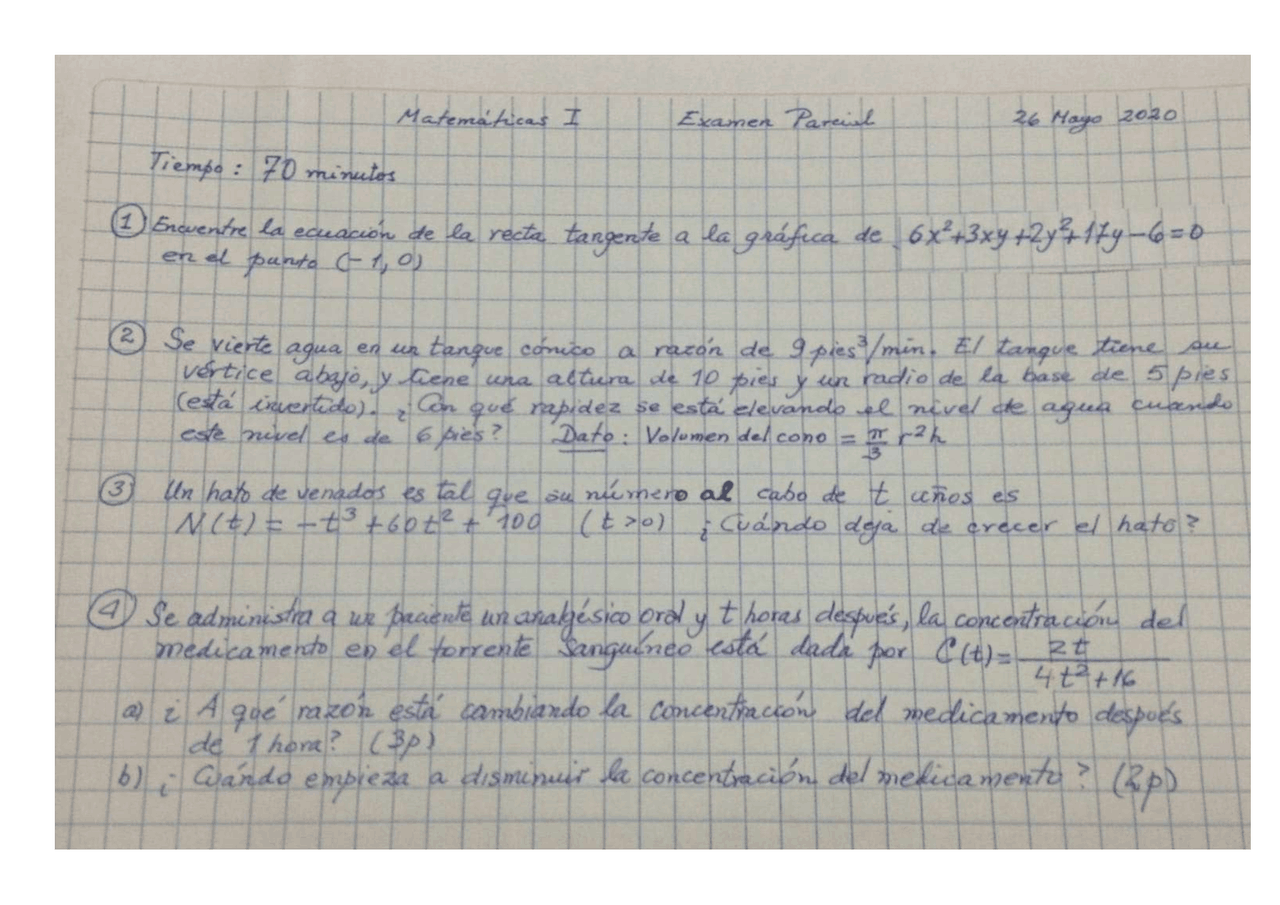 Matemáticas I Examen Parcial 26 Mayo 2020
Tiempo: 70 minutos
① Encuentre la ecuación de la recta tangente a la gráfica de 6x²+3xy+2y²+17y-6=0
en el punto (-1,0)
② Se vierte agua en un tanque cónico a razón de 9 pies³/min. El tanque tiene su
vértice abajo, y tiene una altura de 10 pies y un radio de la base de 5 pies
(está invertido). ¿Con qué rapidez se está elevando el nivel de agua cuando
este nivel es de 6 pies? Dato: Volumen del cono = π/3 r²h
③ Un hato de venados es tal que su número al cabo de t años es
N(t) = -t³ + 60t² + 100 (t>0) ¿Cuándo deja de crecer el hato?
④ Se administra a un paciente un analgésico oral y t horas después, la concentración del
medicamento en el torrente sanguíneo está dada por C(t)= 2t/(4t²+16)
a) ¿A qué razón está cambiando la concentración del medicamento después
de 1 hora? (3p)
b) ¿Cuándo empieza a disminuir la concentración del medicamento? (2p)